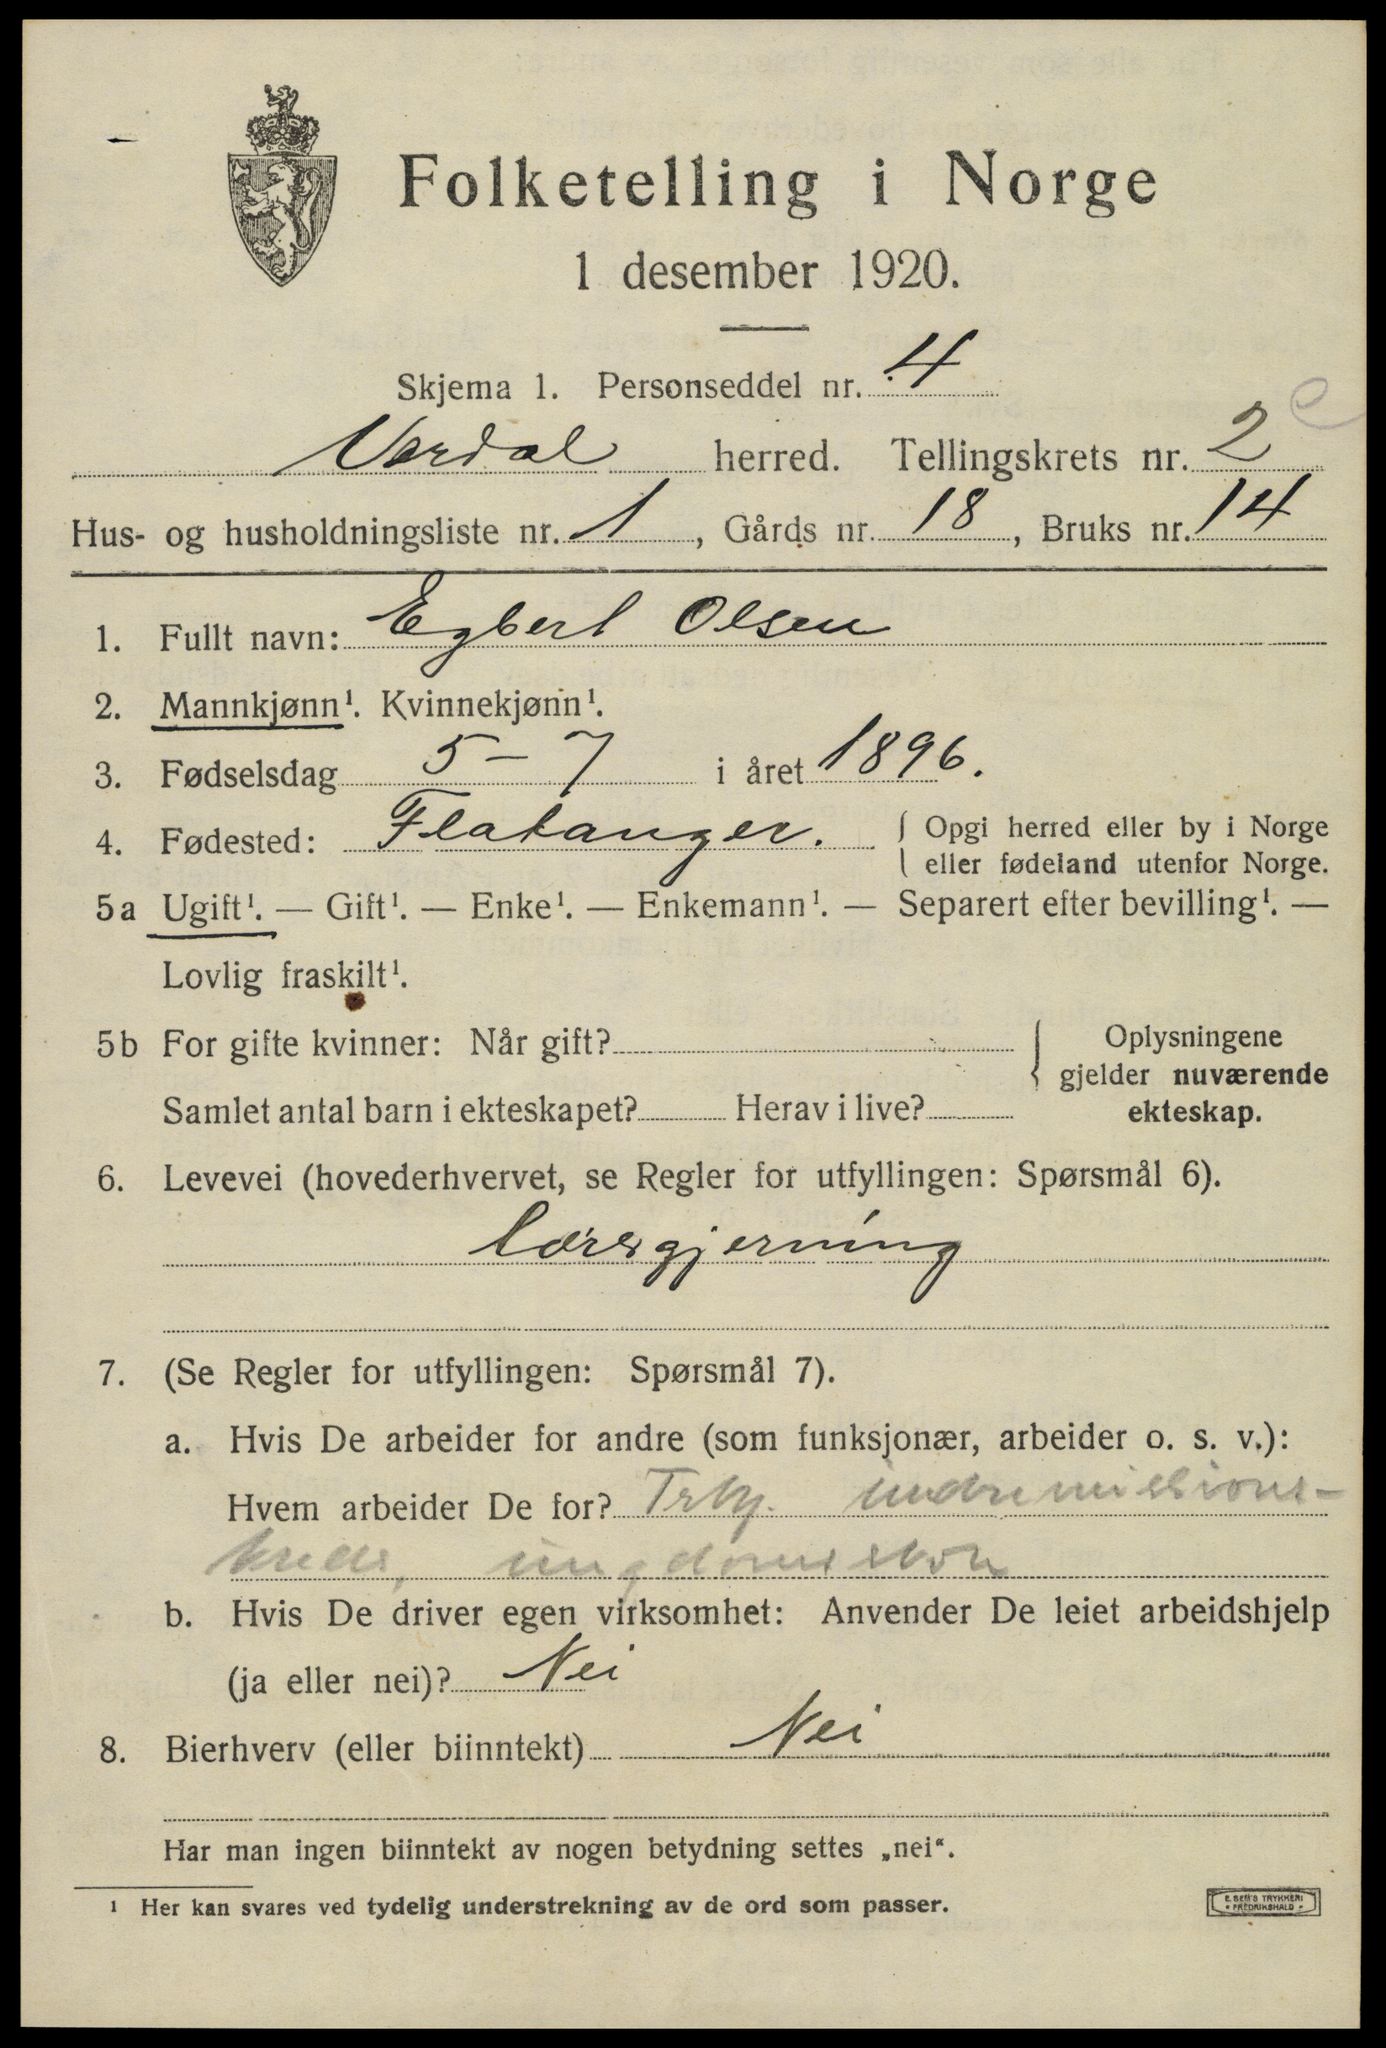 Folketelling i Norge
1 desember 1920.
Skjema 1. Personseddel nr. 4
Verdal herred. Tellingskrets nr. 2
Hus- og husholdningsliste nr. 1, Gårds nr. 18, Bruks nr. 14
1. Fullt navn: Egbert Olsen
2. Mannkjønn¹. Kvinnekjønn¹.
3. Fødselsdag 5 - 7 i året 1896.
4. Fødested: Flatanger. { Opgi herred eller by i Norge
eller fødeland utenfor Norge.
5a Ugift¹. — Gift¹. — Enke¹. — Enkemann¹. — Separert efter bevilling¹. —
Lovlig fraskilt¹.
5b For gifte kvinner: Når gift? { Oplysningene
gjelder nuværende
Samlet antal barn i ekteskapet? Herav i live? ekteskap.
6. Levevei (hovederhvervet, se Regler for utfyllingen: Spørsmål 6).
Lærergjerning
7. (Se Regler for utfyllingen: Spørsmål 7).
a. Hvis De arbeider for andre (som funksjonær, arbeider o. s. v.):
Hvem arbeider De for? indremissions-
kreds, ungdomsskole
b. Hvis De driver egen virksomhet: Anvender De leiet arbeidshjelp
(ja eller nei)? Nei
8. Bierhverv (eller biinntekt) Nei
Har man ingen biinntekt av nogen betydning settes „nei“.
¹ Her kan svares ved tydelig understrekning av de ord som passer.
E. SEM'S TRYKKERI
FREDRIKSHALD